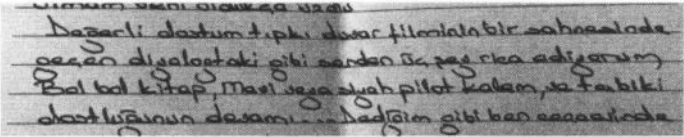 Değerli dostum tıpkı duvar filminin bir sahnesinde
geçen diyalogtaki gibi senden üç şey rica ediyorum,
Bol bol kitap, Mavi veya siyah pilot kalem, ve tabiki
dostluğunun devamı.... Dediğim gibi ben